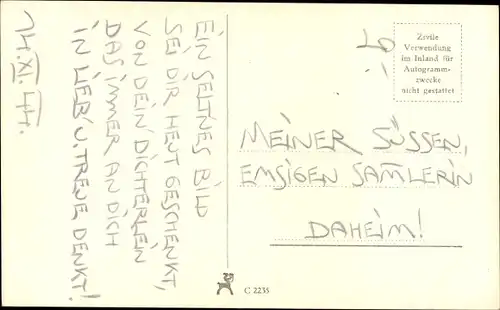 EIN SELTNES BILD
SEI DIR HEUT GESCHENKT,
VON DEIN' DICHTERLEIN
DAS IMMER AN DICH
IN LIEB' U. TREUE DENKT!
14.XI.44.
Zivile
Verwendung
im Inland für
Autogramm-
zwecke
nicht gestattet
MEINER SÜSSEN,
EMSIGEN SAM̄LERIN
DAHEIM!
C 2235